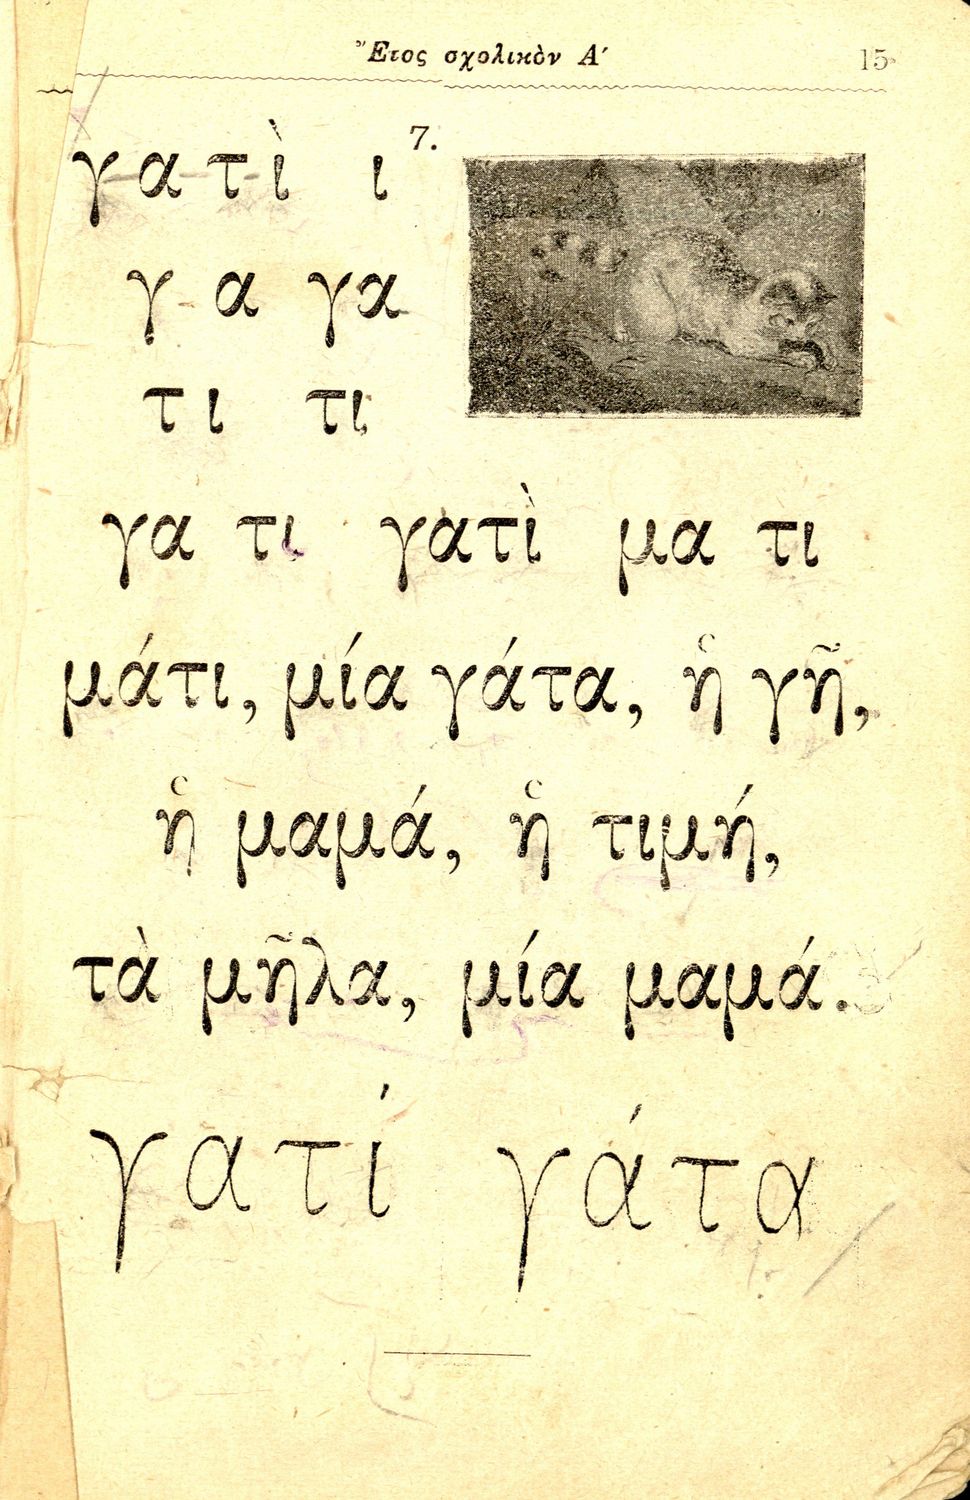 Ἔτος σχολικὸν Α′ 15
7.
γατὶ ι
γ α γα
τι τι
γα τι γατὶ μα τι
μάτι, μία γάτα, ἡ γῆ,
ἡ μαμά, ἡ τιμή,
τὰ μῆλα, μία μαμά.
γατί γάτα